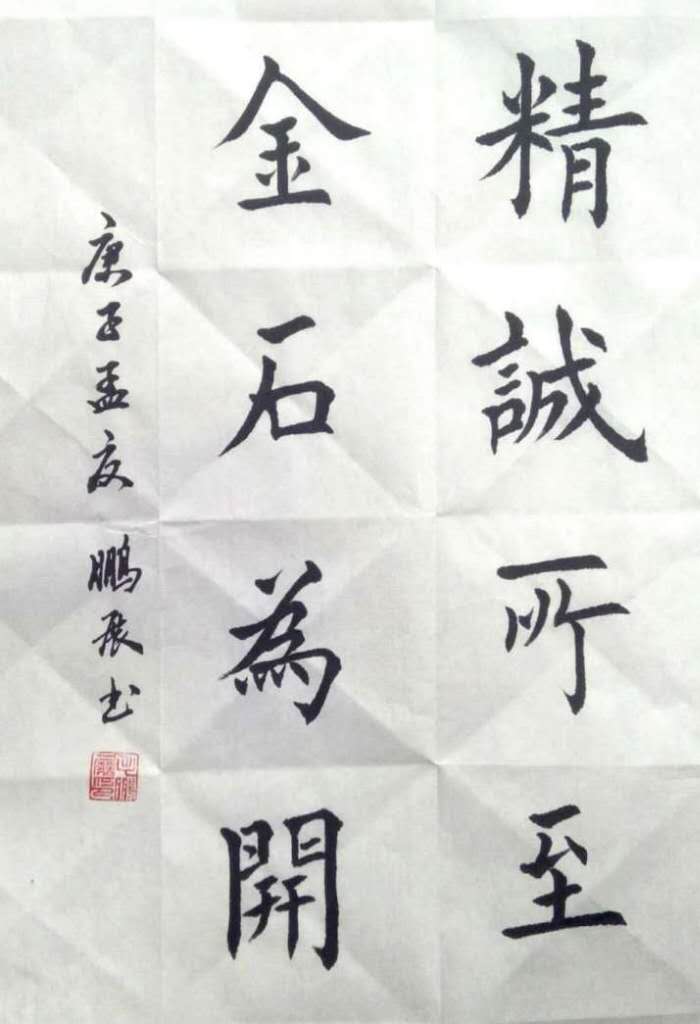 精誠所至
金石為開
庚子孟夏 鵬展书